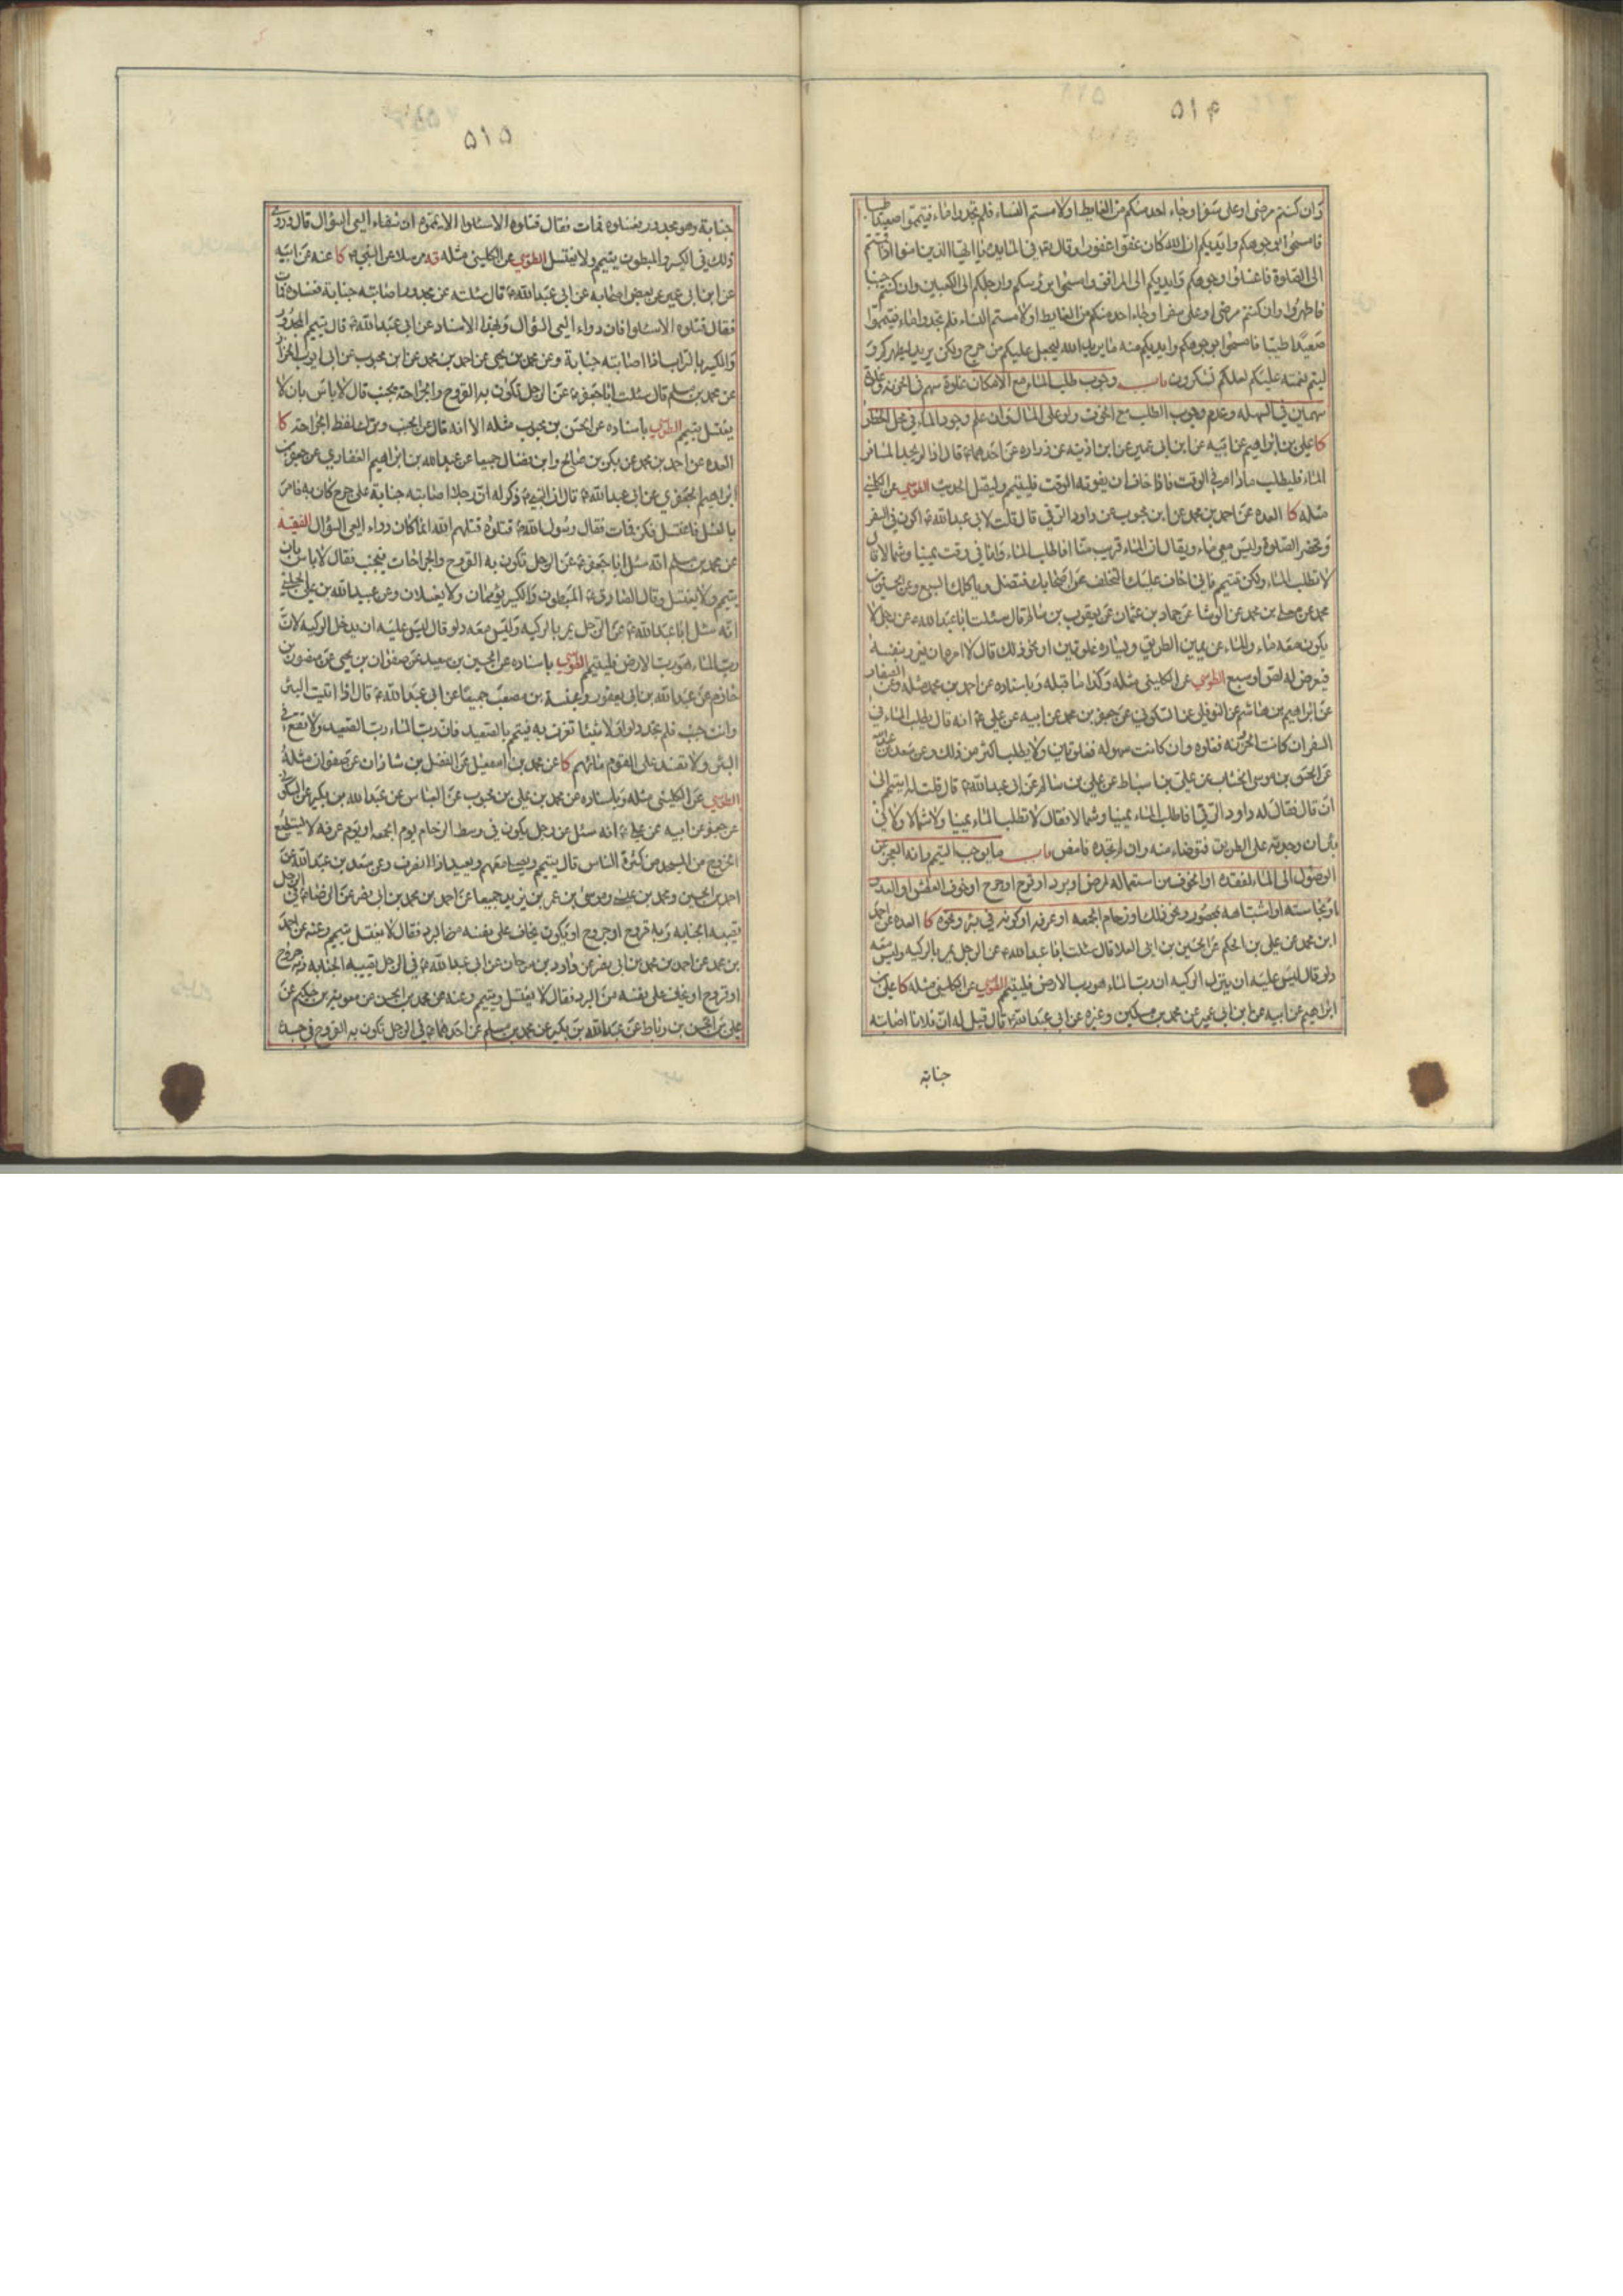 ٥١٤
وان كنتم مرضى او على سفر او جاء احد منكم من الغايط او لامستم النساء فلم تجدوا ماء فتيمموا صعيدا طيبا
فامسحوا بوجوهكم وايديكم ان الله كان عفوا غفورا وقال تعالى في المايدة يا ايها الذين امنوا اذا قمتم
الى الصلوة فاغسلوا وجوهكم وايديكم الى المرافق وامسحوا برؤسكم وارجلكم الى الكعبين وان كنتم جنبا
فاطهروا وان كنتم مرضى او على سفر او جاء احد منكم من الغايط او لامستم النساء فلم تجدوا ماء فتيمموا
صعيدا طيبا فامسحوا بوجوهكم وايديكم منه ما يريد الله ليجعل عليكم من حرج ولكن يريد ليطهركم و
ليتم نعمته عليكم لعلكم تشكرون باب وجوب طلب الماء مع الامكان غلوة سهم في الحزنة وغلوة
سهمين في السهلة وعدم وجوب الطلب مع الخوف ولو على المال وان علم وجود الماء في محل الخطر
كا علي بن ابراهيم عن ابيه عن ابن ابي عمير عن ابن اذينه عن زراره عن احدهما ع قال اذا لم يجد المسافر
الماء فليطلب مادام في الوقت فاذا خاف ان يفوته الوقت فليتيمم وليصل الحديث الطوسي عن الكليني
مثله كا العده عن احمد بن محمد عن ابن محبوب عن داود الرقي قال قلت لابي عبد الله ع اكون في السفر
وتحضر الصلوة وليس معي ماء ويقال ان الماء قريب منا افاطلب الماء وانا في وقت يمينا وشمالا قال
لا تطلب الماء ولكن تيمم فاني اخاف عليك التخلف عن اصحابك فتضل وياكلك السبع وعن الحسين بن
محمد عن معلى بن محمد عن الوشا عن حماد بن عثمان عن يعقوب بن سالم قال سئلت ابا عبد الله ع عن رجل لا
يكون معه ماء والماء عن يمين الطريق ويساره غلوتين او نحو ذلك قال لا امره ان يغرر بنفسه
فيعرض له لص او سبع الطوسي عن الكليني مثله وكذا ما قبله وباسناده عن احمد بن محمد مثله وعن الصفار
عن ابراهيم بن هاشم عن النوفلي عن السكوني عن جعفر بن محمد عن ابيه عن علي ع انه قال يطلب الماء في
السفر ان كانت الحزونه فغلوه وان كانت سهوله فغلوتين ولا يطلب اكثر من ذلك وعن سعد بن عبد الله
عن الحسن بن موسى الخشاب عن علي بن اسباط عن علي بن سالم عن ابي عبد الله ع قال قلت له اتيمم الى
ان قال فقال له داود الرقي افاطلب الماء يمينا وشمالا فقال لا تطلب الماء يمينا ولا شمالا ولا في
بئر ان وجدته على الطريق فتوضاء منه وان لم تجده فامض باب ما يوجب التيمم وانه العجز عن
الوصول الى الماء لفقده او الخوف من استعماله لمرض او برد او قرح او جرح او خوف العطش او العدو
او نجاسته او اشتباهه بمحصور ونحو ذلك او زحام الجمعه او عرفه او كونه في بئر ونحوه كا العده عن احمد
ابن محمد عن علي بن الحكم عن الحسين بن ابي العلا قال سئلت ابا عبد الله ع عن الرجل يمر بالركيه وليس معه
دلو قال ليس عليه ان ينزل الركيه ان رب الماء هو رب الارض فليتيمم الطوسي عن الكليني مثله كا علي بن
ابراهيم عن ابيه عن ابن ابي عمير عن محمد بن مسكين وغيره عن ابي عبد الله ع قال قيل له ان فلانا اصابته
جنابة
٥١٥
جنابة وهو مجدور فغسلوه فمات فقال قتلوه الا سئلوا الا يمموه ان شفاء العي السؤال قال وروي
ذلك في الكسير والمبطون يتيمم ولا يغتسل الطوسي عن الكليني مثله قه مرسلا عن النبي ص كا عنه عن ابيه
عن ابن ابي عمير عن بعض اصحابه عن ابي عبد الله ع قال سئلته عن مجدور اصابته جنابة فغسلوه فمات
فقال قتلوه الا سئلوا فان دواء العي السؤال وبهذا الاسناد عن ابي عبد الله ع قال يتيمم المجدور
والكسير بالتراب اذا اصابته جنابة وعن محمد بن يحيى عن احمد بن محمد عن ابن محبوب عن ابي ايوب الخزاز
عن محمد بن مسلم قال سئلت ابا جعفر ع عن الرجل تكون به القروح والجراحة يجنب قال لا باس بان لا
يغتسل يتيمم الطوسي باسناده عن الحسن بن محبوب مثله الا انه قال عن الجنب وترك لفظ الجراحة كا
العده عن احمد بن محمد عن بكر بن صالح وابن فضال جميعا عن عبد الله بن ابراهيم الغفاري عن جعفر بن
ابراهيم الجعفري عن ابي عبد الله ع قال ان النبي ص ذكر له ان رجلا اصابته جنابة على جرح كان به فامر
بالغسل فاغتسل فكز فمات فقال رسول الله ص قتلوه قتلهم الله انما كان دواء العي السؤال الفقيه
عن محمد بن مسلم انه سئل ابا جعفر ع عن الرجل تكون به القروح والجراحات فيجنب فقال لا باس بان
يتيمم ولا يغتسل وقال الصادق ع المبطون والكسير يؤممان ولا يغسلان وعن عبيد الله بن علي الحلبي
انه سئل ابا عبد الله ع عن الرجل يمر بالركيه وليس معه دلو قال ليس عليه ان يدخل الركيه لان
رب الماء هو رب الارض فليتيمم الطوسي باسناده عن الحسين بن سعيد عن صفوان بن يحيى عن منصور بن
حازم عن عبد الله بن ابي يعفور وعنبسة بن مصعب جميعا عن ابي عبد الله ع قال اذا اتيت البئر
وانت جنب فلم تجد دلوا ولا شيئا تغرف به فتيمم بالصعيد فان رب الماء رب الصعيد ولا تقع في
البئر ولا تفسد على القوم مائهم كا عن محمد بن اسمعيل عن الفضل بن شاذان عن صفوان مثله
الطوسي عن الكليني مثله وباسناده عن محمد بن علي بن محبوب عن العباس عن عبد الله بن بكير عن السكوني
عن جعفر عن ابيه عن علي ع انه سئل عن رجل يكون في وسط الزحام يوم الجمعه او يوم عرفه لا يستطيع
الخروج من المسجد من كثرة الناس قال يتيمم ويصلي معهم ويعيد اذا انصرف وعن سعد بن عبد الله عن
احمد بن الحسين ومحمد بن عيسى وموسى بن عمر بن يزيد جميعا عن احمد بن محمد بن ابي نصر عن الرضا ع في الرجل
تصيبه الجنابه وبه قروح او جروح او يكون يخاف على نفسه من البرد فقال لا يغتسل يتيمم وعنه عن احمد
بن محمد عن احمد بن محمد بن ابي نصر عن داود بن سرحان عن ابي عبد الله ع في الرجل تصيبه الجنابه وبه جروح
او قروح او يخاف على نفسه من البرد فقال لا يغتسل ويتيمم وعنه عن محمد بن الحسين عن معويه بن حكيم عن
علي بن الحسن بن رباط عن عبد الله بن بكير عن محمد بن مسلم عن احدهما ع في الرجل تكون به القروح في جسده